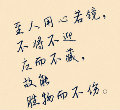 至人用心若镜，
不将不迎
应而不藏，
故能
胜物而不伤。